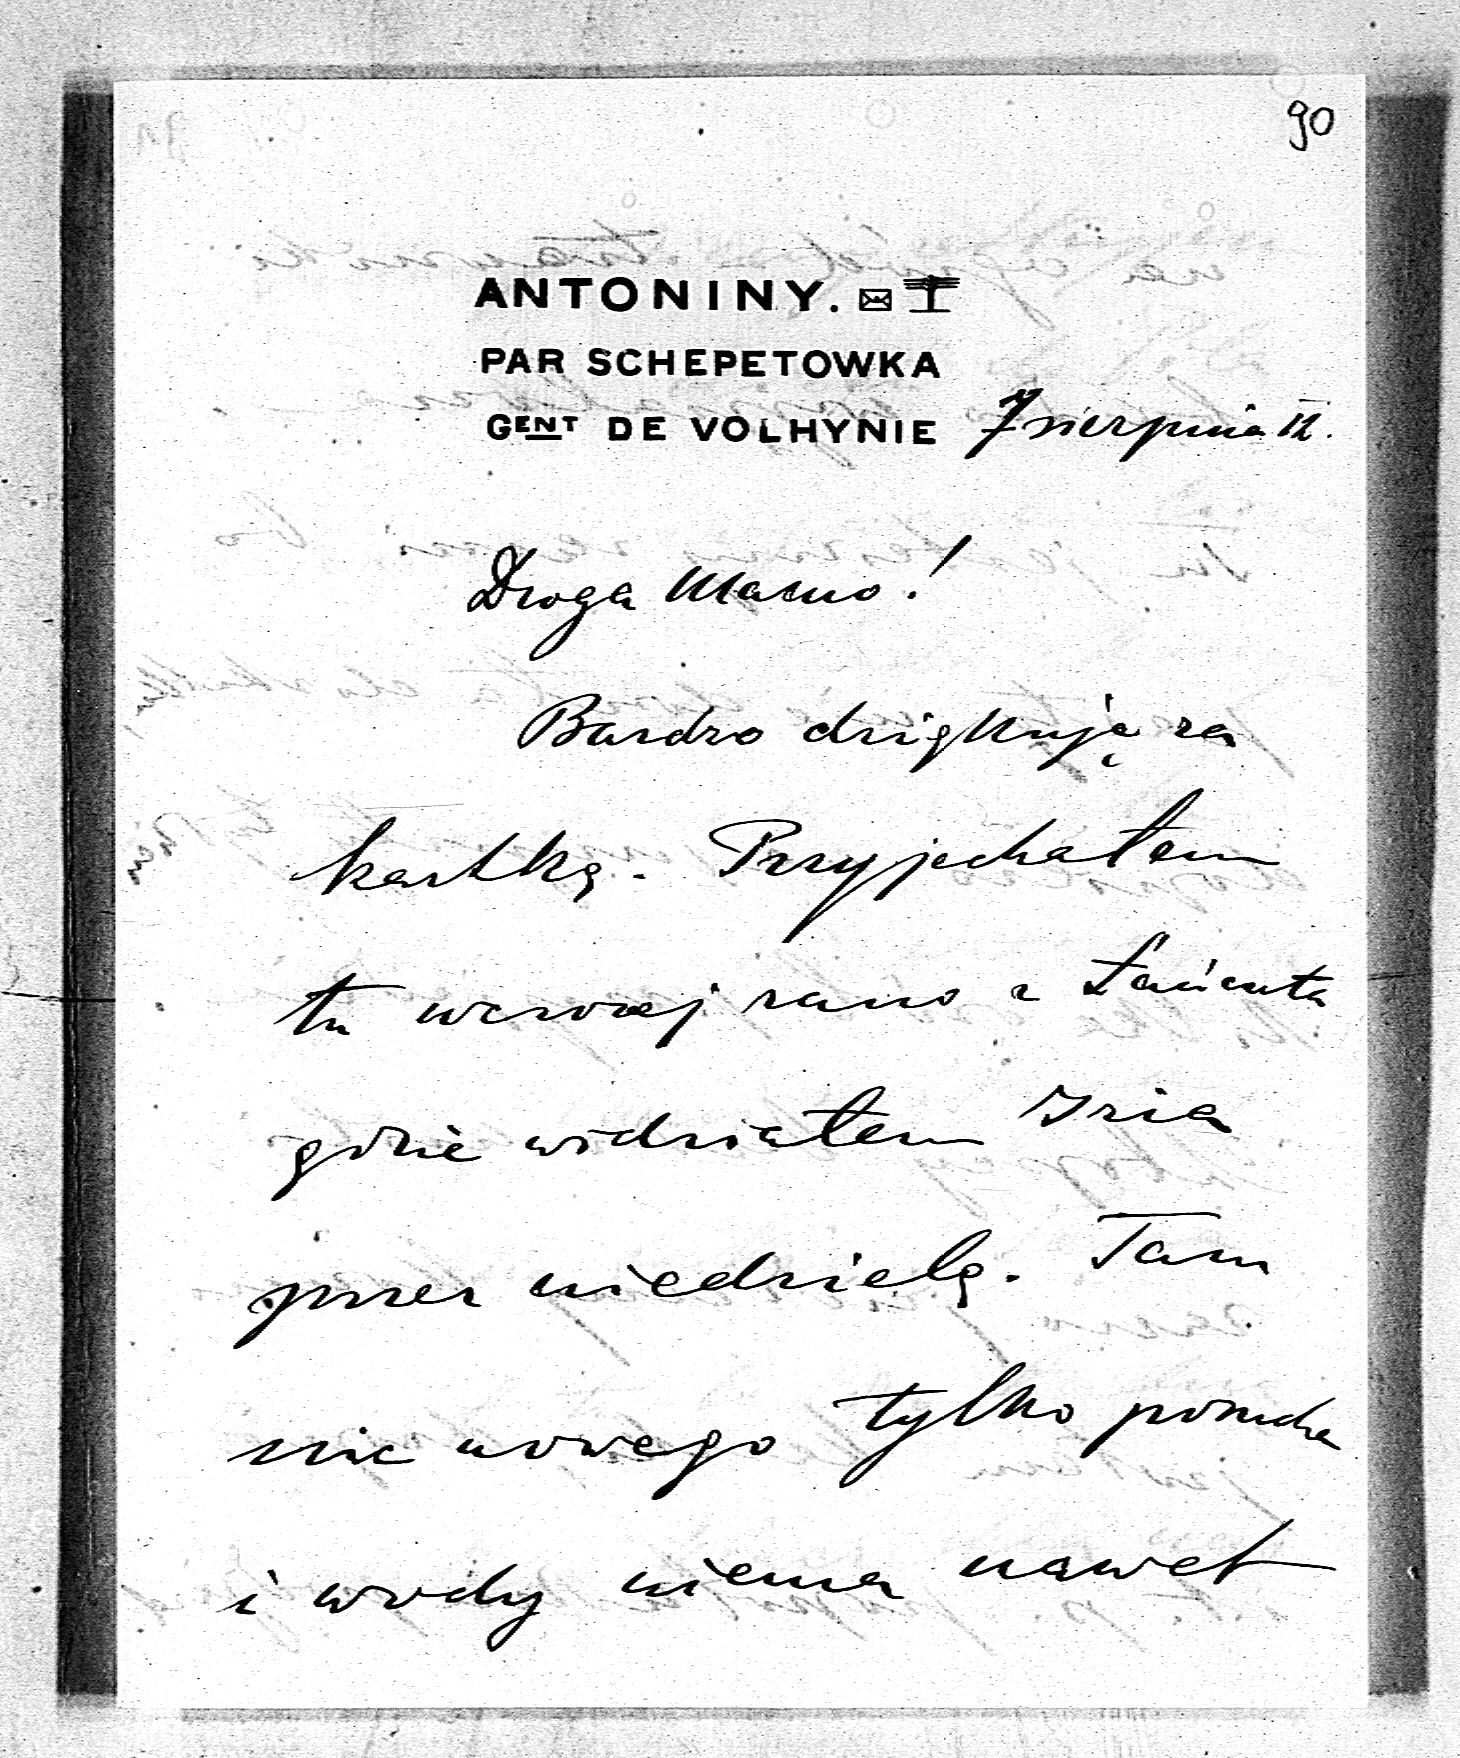 90
ANTONINY.
PAR SCHEPETOWKA
GENT DE VOLHYNIE 7 sierpnia 12.
Droga Mamo!
Bardzo dziękuję za
kartkę. Przyjechałem
tu wczoraj rano z Łańcuta
gdzie widziałem Izia
przez niedzielę. Tam
nic nowego tylko
i wody niema nawet